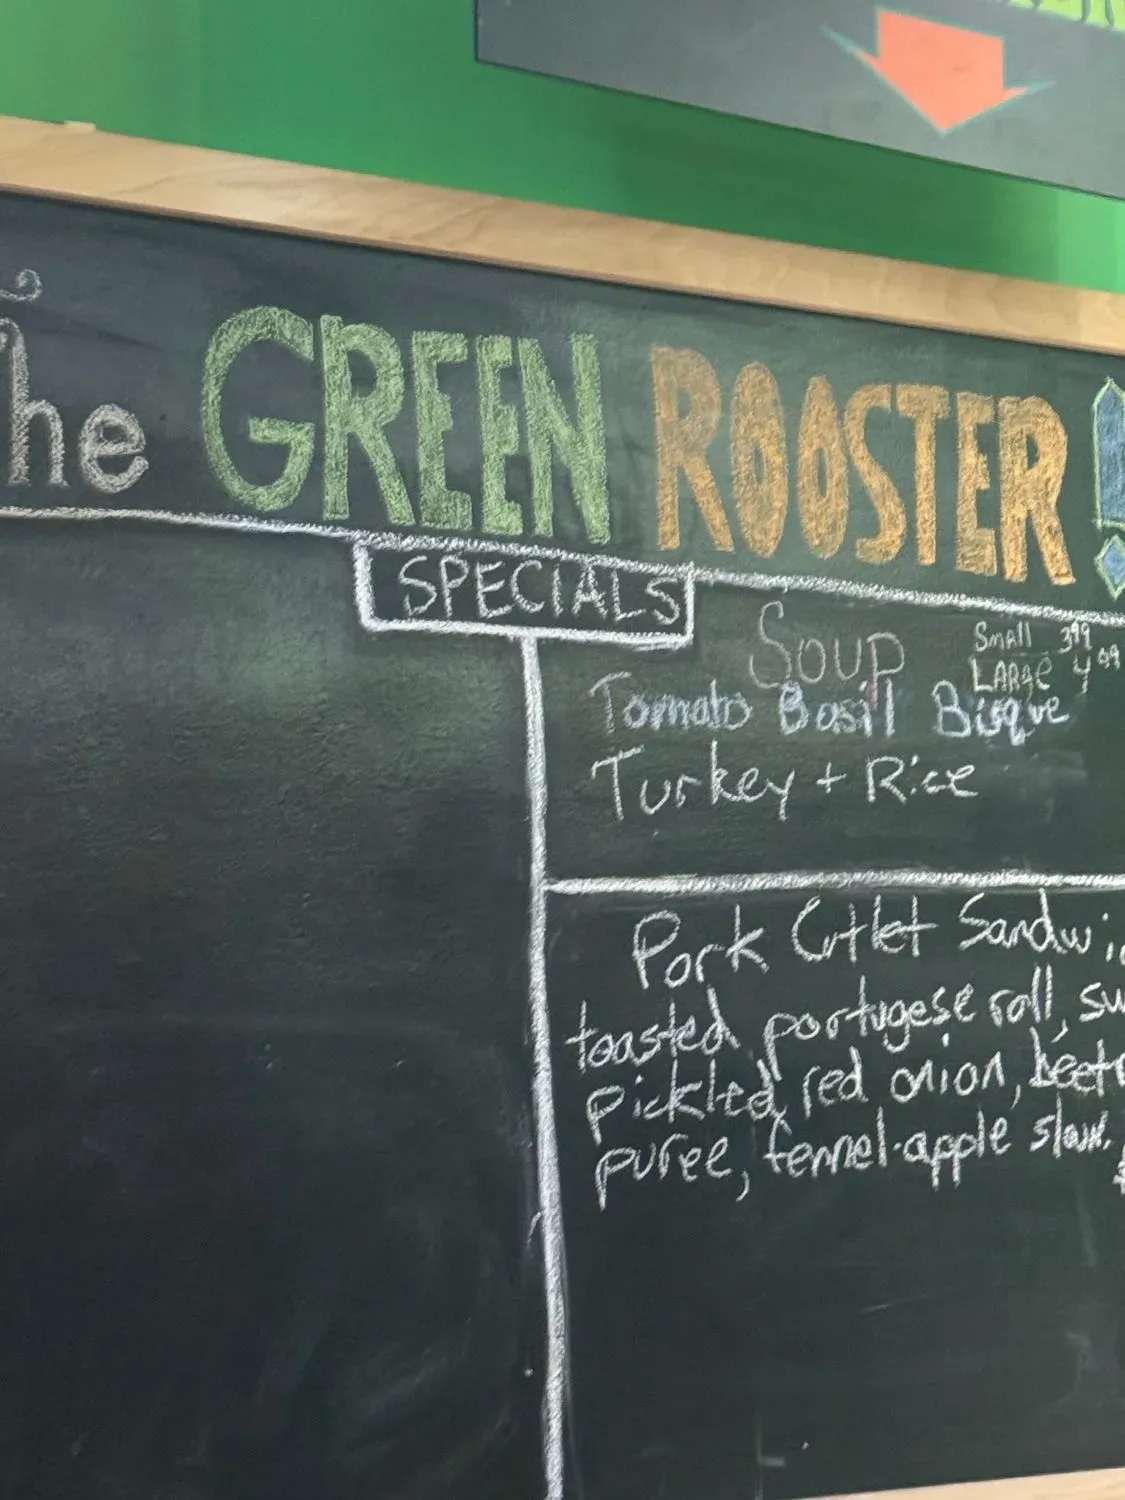 The GREEN ROOSTER!
SPECIALS
Soup
Small 3.99
LARGE 4.99
Tomato Basil Bisque
Turkey + Rice
Pork Cutlet Sandwic
toasted portugese roll, sw
pickled red onion, beet
puree, fennel-apple slaw.